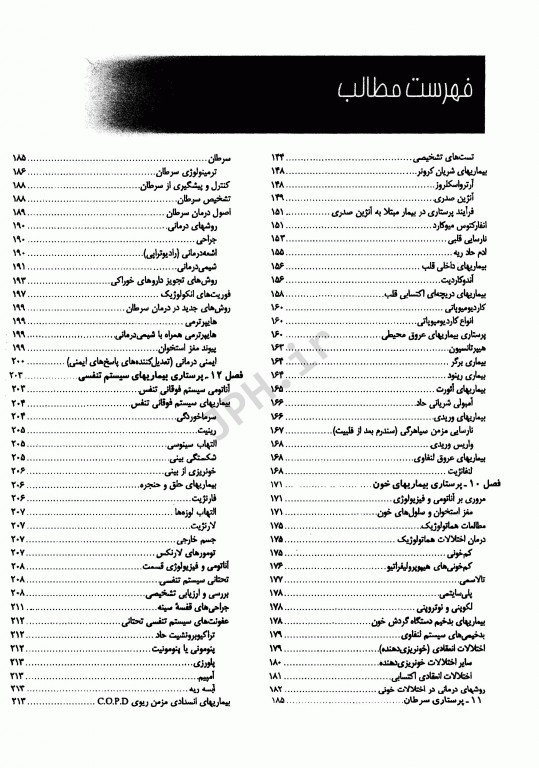 فهرست مطالب
تست‌های تشخیصی ۱۴۴
بیماریهای شریان کرونر ۱۴۸
آرترواسکلروز ۱۴۸
آنژین صدری ۱۴۹
فرآیند پرستاری در بیمار مبتلا به آنژین صدری ۱۵۱
انفارکتوس میوکارد ۱۵۱
نارسایی قلبی ۱۵۳
ادم حاد ریه ۱۵۵
بیماریهای داخلی قلب ۱۵۶
آندوکاردیت ۱۵۶
بیماریهای دریچه‌ای اکتسابی قلب ۱۵۸
کاردیومیوپاتی ۱۶۰
انواع کاردیومیوپاتی ۱۶۰
پرستاری بیماریهای عروق محیطی ۱۶۰
هیپرتانسیون ۱۶۳
بیماری برگر ۱۶۴
بیماری رینود ۱۶۴
بیماریهای آئورت ۱۶۵
آمبولی شریانی حاد ۱۶۶
بیماریهای وریدی ۱۶۶
نارسایی مزمن سیاهرگی (سندرم بعد از فلبیت) ۱۶۷
واریس وریدی ۱۶۸
بیماریهای عروق لنفاوی ۱۶۸
لنفانژیت ۱۶۸
فصل ۱۰ـ پرستاری بیماریهای خون ۱۷۱
مروری بر آناتومی و فیزیولوژی ۱۷۱
مغز استخوان و سلول‌های خون ۱۷۱
مطالعات هماتولوژیک ۱۷۵
درمان اختلالات هماتولوژیک ۱۷۵
کم‌خونی ۱۷۵
کم‌خونی‌های هیپوپرولیفراتیو ۱۷۶
تالاسمی ۱۷۷
پلی‌سایتمی ۱۷۸
لکوپنی و نوتروپنی ۱۷۸
بیماریهای بدخیم دستگاه گردش خون ۱۷۸
بدخیمی‌های سیستم لنفاوی ۱۷۹
اختلالات انعقادی (خونریزی‌دهنده) ۱۷۹
سایر اختلالات خونریزی‌دهنده ۱۸۰
اختلالات انعقادی اکتسابی ۱۸۱
روشهای درمانی در اختلالات خونی ۱۸۲
۱۱ـ پرستاری سرطان ۱۸۵
سرطان ۱۸۵
ترمینولوژی سرطان ۱۸۶
کنترل و پیشگیری از سرطان ۱۸۸
تشخیص سرطان ۱۸۸
اصول درمان سرطان ۱۸۹
روشهای درمانی ۱۹۰
جراحی ۱۹۰
اشعه‌درمانی (رادیوتراپی) ۱۹۰
شیمی‌درمانی ۱۹۱
روش‌های تجویز داروهای خوراکی ۱۹۳
فوریت‌های انکولوژیک ۱۹۷
روش‌های جدید در درمان سرطان ۱۹۹
هایپرترمی ۱۹۹
هایپرترمی همراه با شیمی‌درمانی ۱۹۹
پیوند مغز استخوان ۱۹۹
ایمنی درمانی (تعدیل‌کننده‌های پاسخ‌های ایمنی) ۲۰۰
فصل ۱۲ـ پرستاری بیماریهای سیستم تنفسی ۲۰۳
آناتومی سیستم فوقانی تنفس ۲۰۳
بیماریهای سیستم فوقانی تنفس ۲۰۴
سرماخوردگی ۲۰۴
رینیت ۲۰۵
التهاب سینوسی ۲۰۵
شکستگی بینی ۲۰۵
خونریزی از بینی ۲۰۶
بیماریهای حلق و حنجره ۲۰۶
فارنژیت ۲۰۶
التهاب لوزه‌ها ۲۰۷
لارنژیت ۲۰۷
جسم خارجی ۲۰۷
تومورهای لارنکس ۲۰۷
آناتومی و فیزیولوژی قسمت ۲۰۸
تحتانی سیستم تنفسی ۲۰۸
بررسی و ارزیابی تشخیصی ۲۰۸
جراحی‌های قفسهٔ سینه ۲۱۱
عفونت‌های سیستم تنفسی تحتانی ۲۱۲
تراکئوبرونشیت حاد ۲۱۲
پنومونی یا پنومونیت ۲۱۲
پلورزی ۲۱۳
آمپیم ۲۱۳
آبسه ریه ۲۱۳
بیماریهای انسدادی مزمن ریوی C.O.P.D ۲۱۳
JPH.ir